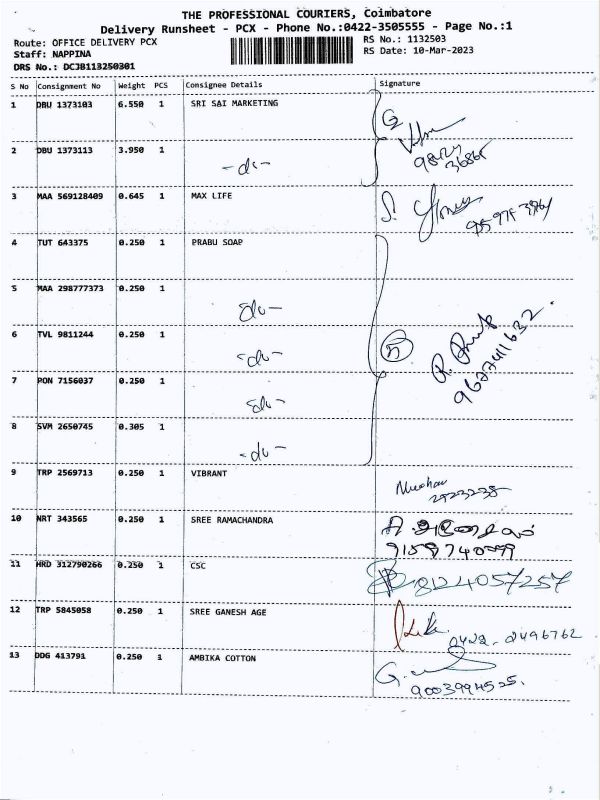 THE PROFESSIONAL COURIERS, Coimbatore
Delivery Runsheet - PCX - Phone No.:0422-3505555 - Page No.:1
Route: OFFICE DELIVERY PCX
RS No.: 1132503
Staff: NAPPINA
RS Date: 10-Mar-2023
DRS No.: DCJB113250301
S No Consignment No Weight PCS Consignee Details Signature
1 DBU 1373103 6.550 1 SRI SAI MARKETING
2 DBU 1373113 3.950 1 -do-
3 MAA 569128409 0.645 1 MAX LIFE
4 TUT 643375 0.250 1 PRABU SOAP
5 MAA 298777373 0.250 1 -do-
6 TVL 9811244 0.250 1 -do- 5
9677411632
7 PON 7156037 0.250 1 -do-
8 SVM 2650745 0.305 1 -do-
9 TRP 2569713 0.250 1 VIBRANT
2423235
10 NRT 343565 0.250 1 SREE RAMACHANDRA
11 HRD 312790266 0.250 1 CSC 8124057257
12 TRP 5845058 0.250 1 SREE GANESH AGE
0422-2496762
13 DDG 413791 0.250 1 AMBIKA COTTON
9003994525.